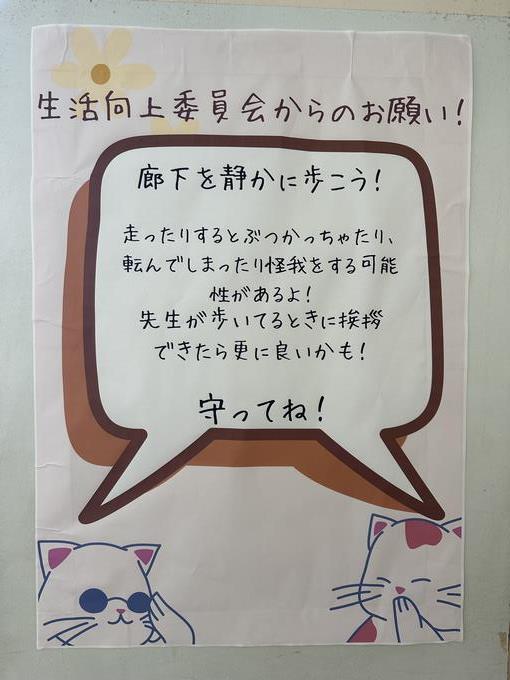 生活向上委員会からのお願い!
廊下を静かに歩こう!
走ったりするとぶつかっちゃたり、
転んでしまったり怪我をする可能
性があるよ!
先生が歩いてるときに挨拶
できたら更に良いかも!
守ってね!